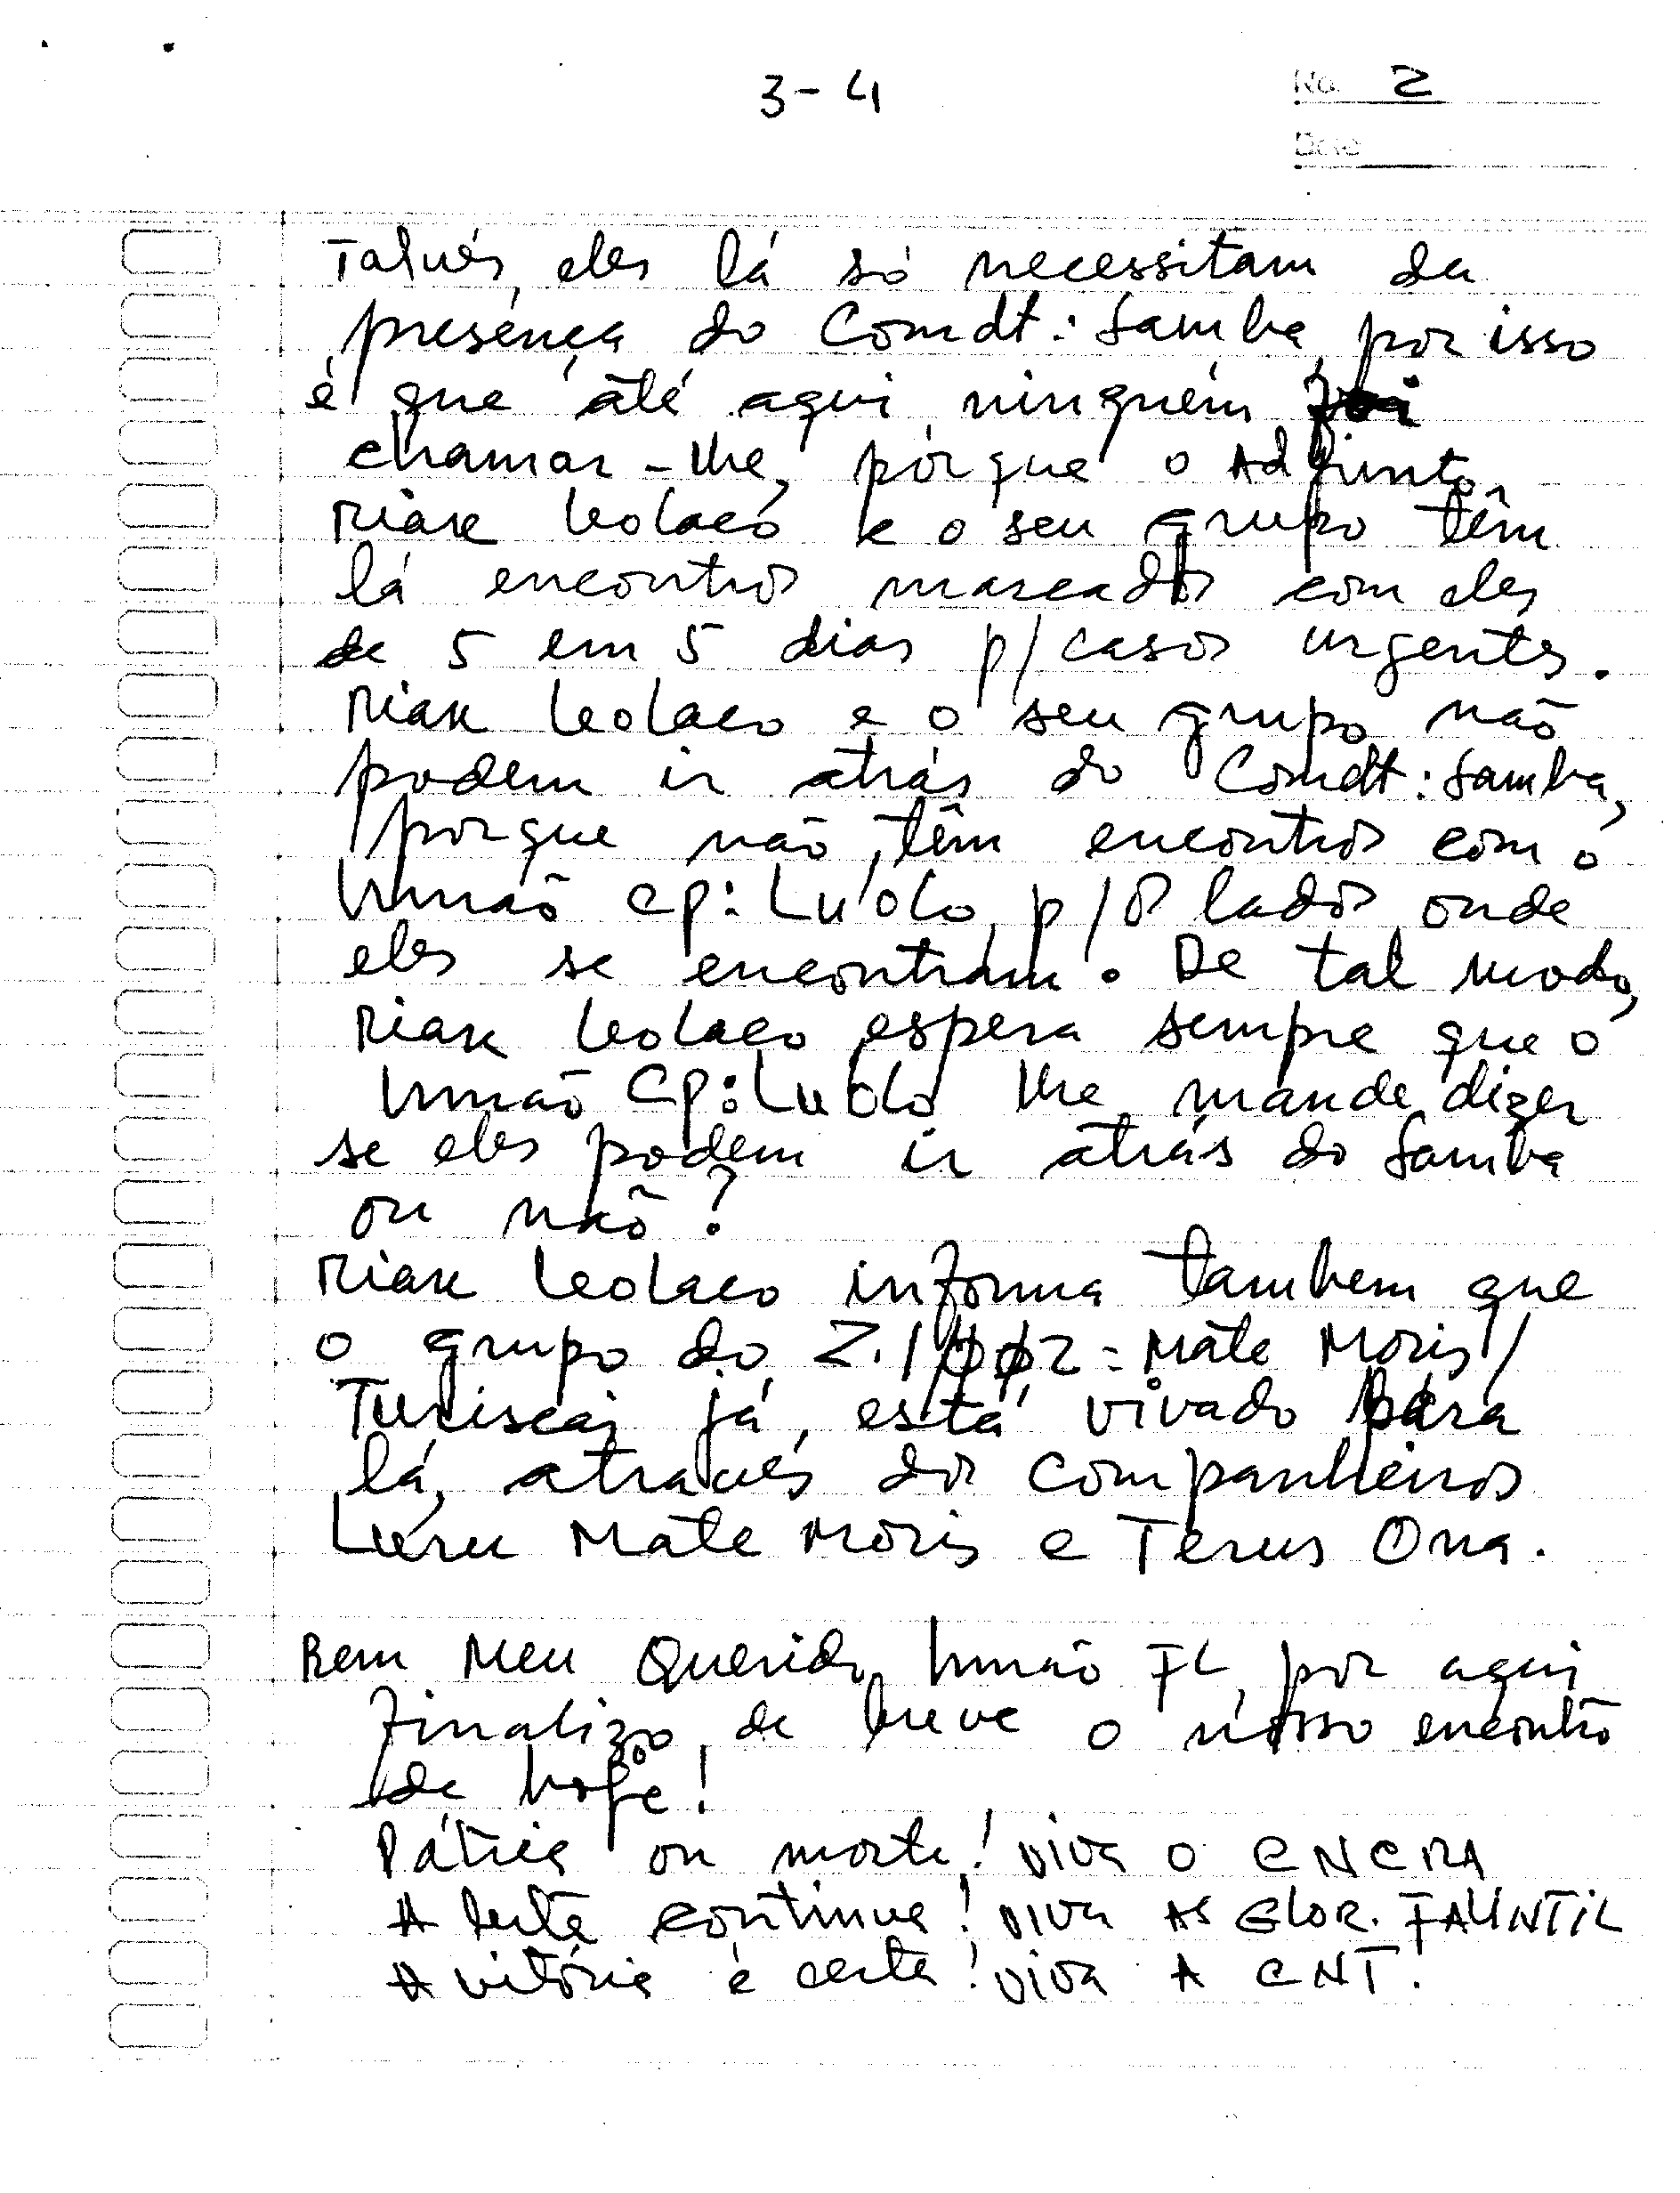 3-4
No. 2
Date
Talvés, eles lá só necessitam da
presença do Comdt: Samba, por isso
é que até aqui ninguém foi
chamar-lhe, porque o Adjunto
Riak Leolaco e o seu grupo têm
lá encontros marcados com eles
de 5 em 5 dias p/ casos urgentes.
Riak Leolaco e o seu grupo não
podem ir atrás do Comdt: Samba,
porque não têm encontros com o
Irmão CP: Lu'Olo, p/os lados onde
eles se encontram. De tal modo,
Riak Leolaco espera sempre que o
Irmão CP: Lu'Olo lhe mande dizer
se eles podem ir atrás do Samba
ou não?
Riak Leolaco informa tambem que
o grupo do Z.1002 = Mate Moris/
Turiscai já está vivado para
lá, através dos companheiros
Mate Moris e Terus Ona.
Bem Meu Querido Irmão FL, por aqui
finalizo de breve o nosso encontro
de hoje!
Pátria ou morte! Viva o CNCRA
A luta continua! Viva as GLOR. FALINTIL
A vitória é certa! Viva A CNT!